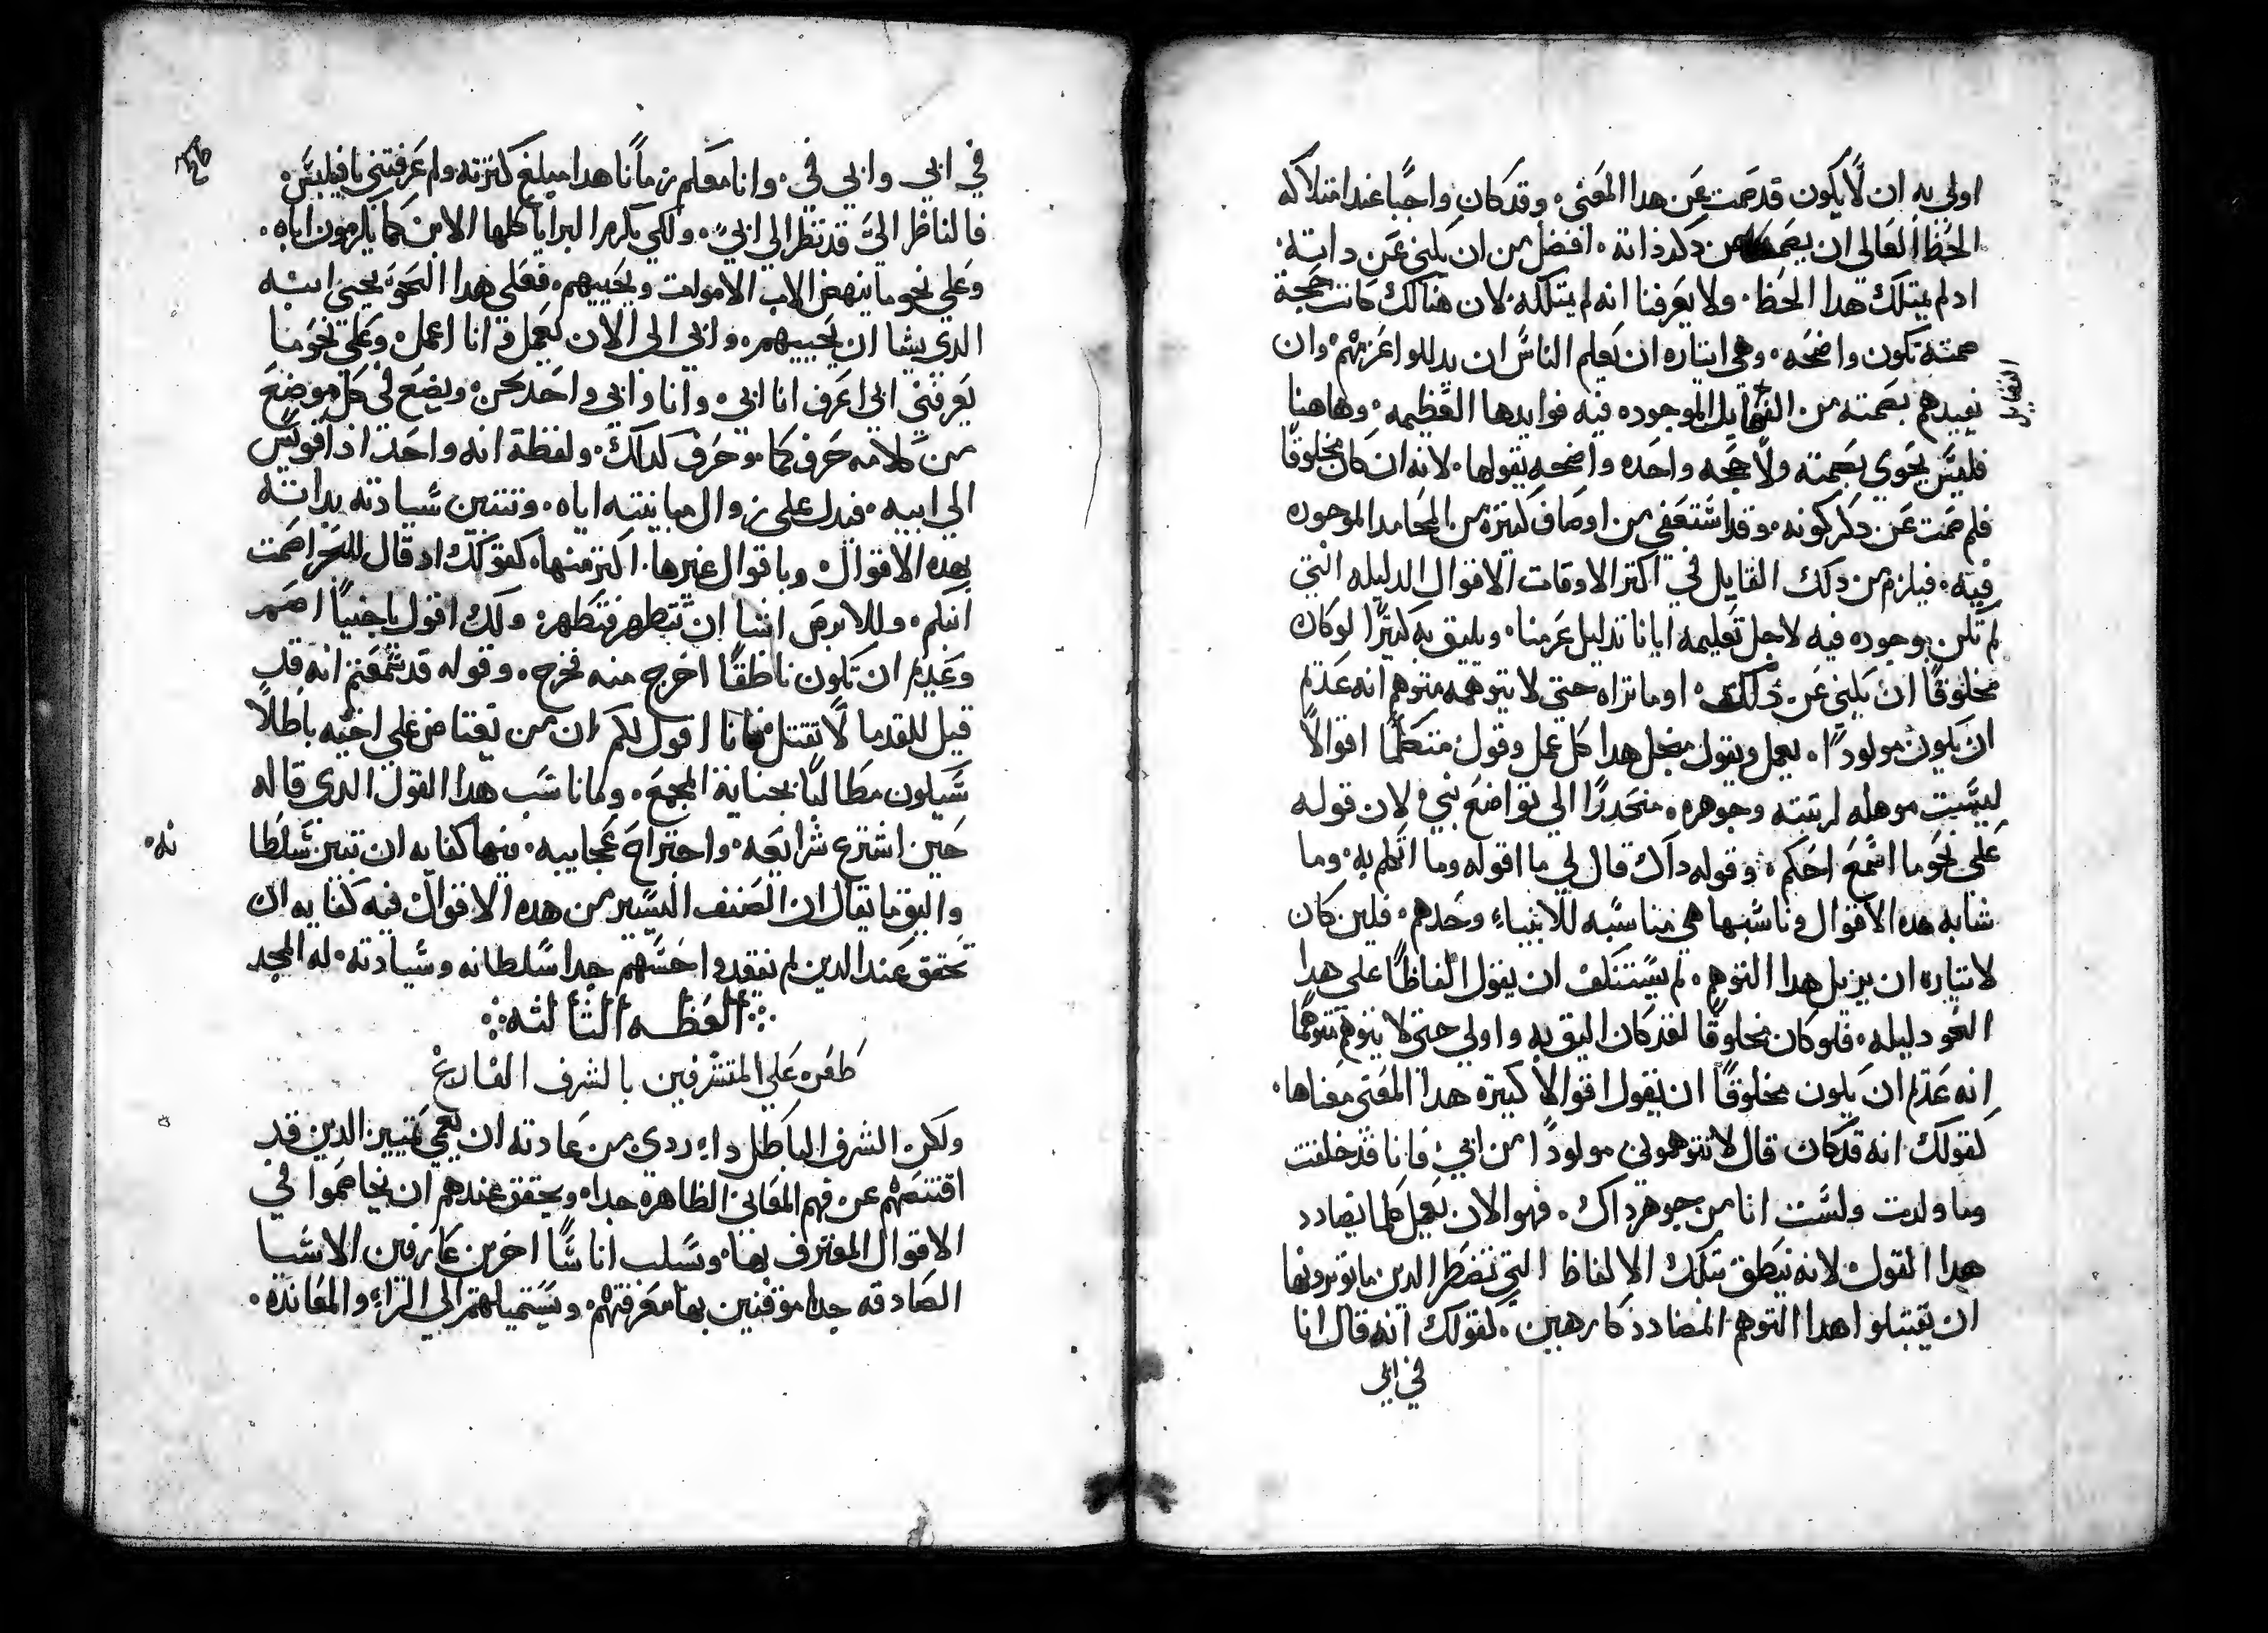 اولى به ان لا يكون قد صمت عن هدا المعنى. وقد كان واجبًا عند امتلاكه
الحظ العالي ان يصمت عن دكر ذاته. افضل من ان يكني عن داته.
اد لم يمتلك هدا الحظ. ولا يعرفنا انه لم يمتلكه. لان هنالك كانت حجة
صمته تكون واضحه. وهي ايتاره ان يعلم الناس ان يدللوا عزمهم. وان
يفيدهم بصمته من الفضايل الموجوده فيه فوايدها العظيمه. وهاهنا
الفضايل
فليس يحوي بصمته ولا حجه واحده واضحه يقولها. لانه ان كان مخلوقًا
فلم صمت عن دكر كونه. وقد استعفي من اوصاف كتيره من المحامد الموجوده
فيه. فيلزم من دلك القايل في اكتر الاوقات الاقوال الدليله التي
لم تكن موجوده فيه لاجل تعليمه ايانا تدليل عزمنا. ويليق به كتيرًا لو كان
مخلوقًا ان يكني عن دلك. اوما تراه حتى لا يتوهمه متوهم انه عدم
ان يكون مولودًا. يعمل ويقول من اجل هدا كل عمل وقول متكلمًا اقوالًا
ليست موهله لرتبته وجوهره. منحدرًا الي تواضع بني. لان قوله
على نحو ما اسمع احكم. وقوله داك قال لي ما اقوله وما اتكلم به. وما
شابه هده الاقوال وناسبها هي مناسبه للانبياء وحدهم. فلين كان
لايتاره ان يزيل هدا التوهم. لم يستنكف ان يقول الفاظًا على هدا
النحو دليله. فلو كان مخلوقًا لقد كان اليق به واولي حتى لا يتوهم متوهمًا
انه عدم ان يكون مخلوقًا ان يقول اقوالا كتيرة هدا المعنى معناها.
كقولك انه قد كان قال لا تتوهموني مولودًا من ابي. فانا قد خلقت
وما ولدت ولست انا من جوهر داك. فهو الان يعمل كلما يضادد
هدا القول. لانه ينطق بتلك الالفاظ التي تضطر الدين ما يوترونها
ان يقبلوا هدا التوهم المضادد كارهين. كقولك انه قال انا
في ابي
في ابي وابي في. وانا معكم زمانًا هدا مبلغ كترته ولم عرفتني يا فيلبس.
فالناظر الي قد نظر الي ابي. ولكي يكرم البرايا كلها الابن كما يكرمون اباه.
وعلي نحو ما ينهض الاب الاموات ويحييهم. فعلي هدا النحو يحيي ابنه
الدي يشا ان يحييهم. وابي الي الان يعمل وانا اعمل. وعلي نحو ما
يعرفني ابي اعرف انا ابي. وانا وابي واحد نحن. ويضع في كل موضع
من كلامه حرف كما وحرف كدلك. ولفظة انه واحد اذا قويس
الي ابيه. فيدل علي زوال مباينته اياه. وتتبين سيادته بداته
بهده الاقوال وباقوال غيرها. اكتر منها. كقولك اد قال للبحر اصمت
انكم. وللابرص انني اشا ان تتطهر فتطهر. ولك اقول يا جنيًا اصم
وعديم ان تكون ناطقًا اخرج منه فخرج. وقوله قد سمعتم انه قد
قيل للقدما لا تقتل فانا اقول لكم ان من يغتاض علي اخيه باطلًا
سيكون مطالبًا بجناية المجمع. وما ناسب هدا القول الدي قاله
حين اشترع شرايعه. واجتراح عجايبه. فيها كفايه ان تبين سلطا
نه.
واليق ما يقال ان الصنف اليسير من هده الاقوال فيه كفايه ان
تحقق عند الدين لم يفقدوا حسهم جدا سلطانه وسيادته. له المجد
العظه التالته
طعن علي المتشرفين بالشرف الفارغ
ولكن الشرف الباطل داء ردي من عادته ان يعمي تمييز الدين قد
اقتنصهم عن فهم المعاني الظاهره جدا. ويحقق عندهم ان يخاصموا في
الاقوال المعترف بها. ويسلب اناسًا اخرين عارفين الاشيا
الصادقه جدا موقنين بها معرفتهم. ويستميلهم الي المراء والمعانده.